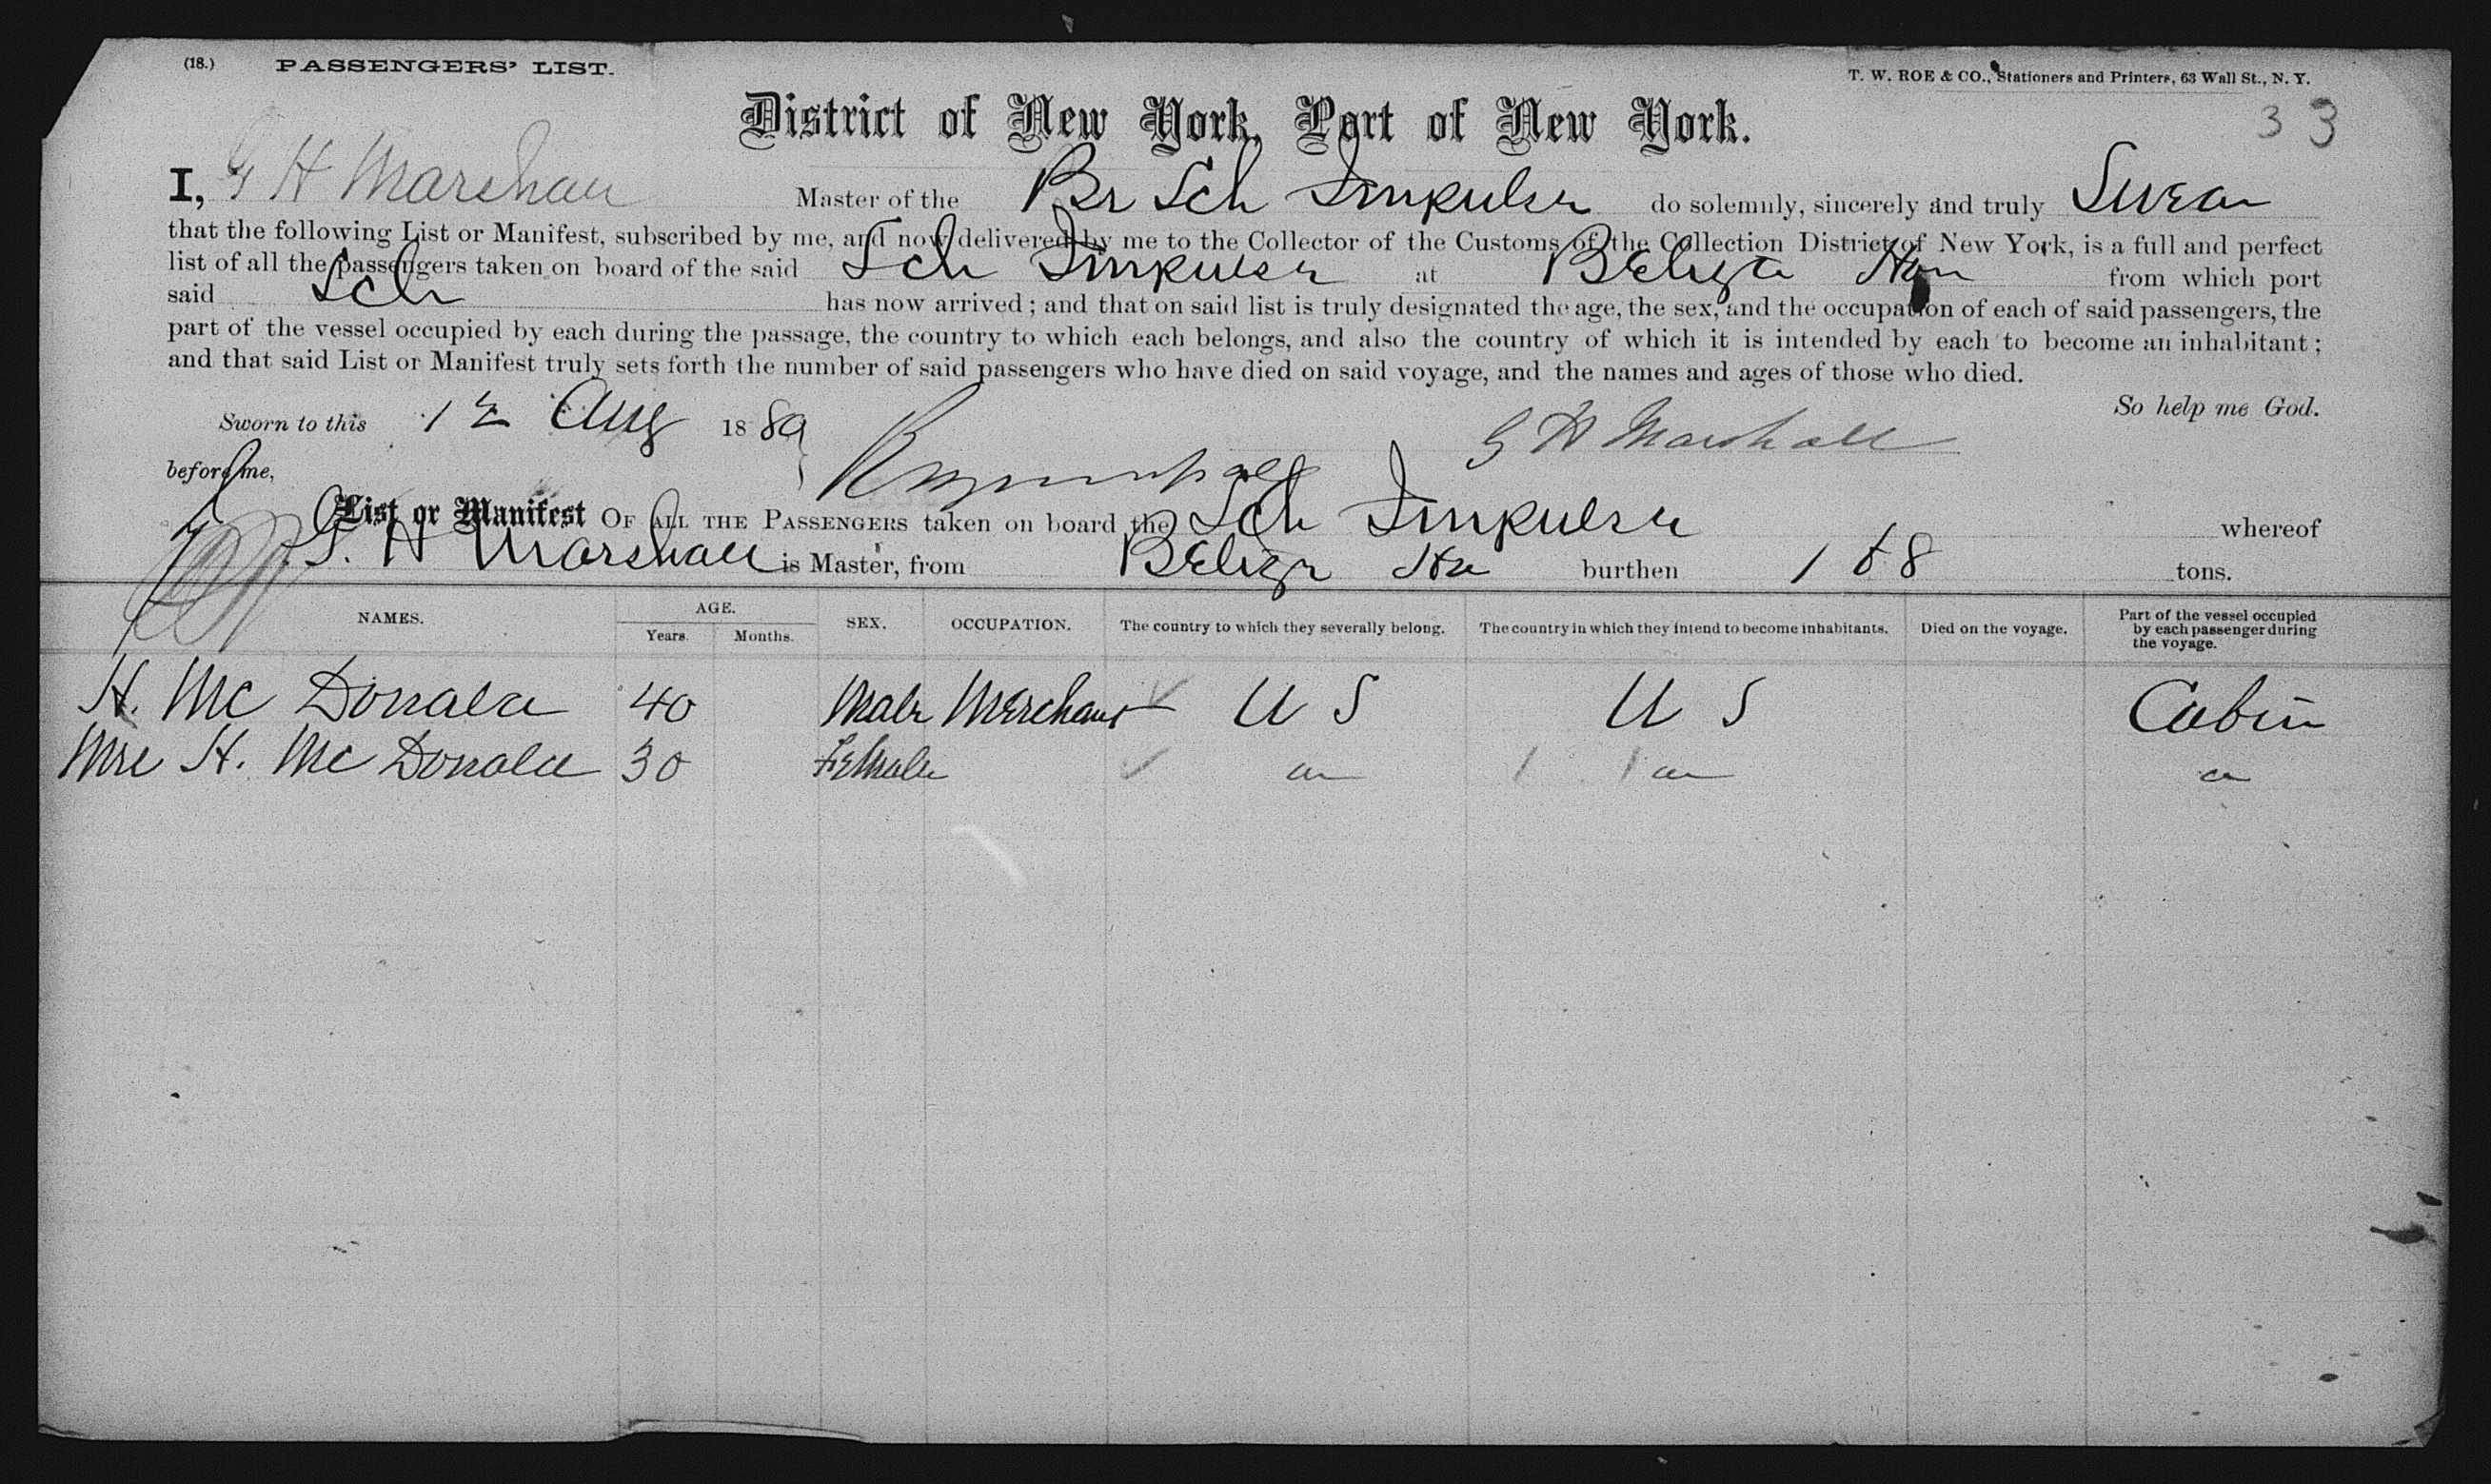 (18.) PASSENGERS' LIST. T. W. ROE & CO., Stationers and Printers, 63 Wall St., N. Y.
District of New York, Port of New York. 33
I, G H Marshall Master of the Br Sch Impulse do solemnly, sincerely and truly Swear
that the following List or Manifest, subscribed by me, and now delivered by me to the Collector of the Customs of the Collection District of New York, is a full and perfect
list of all the passengers taken on board of the said Sch Impulse at Belize Hon from which port
said Sch has now arrived; and that on said list is truly designated the age, the sex, and the occupation of each of said passengers, the
part of the vessel occupied by each during the passage, the country to which each belongs, and also the country of which it is intended by each to become an inhabitant;
and that said List or Manifest truly sets forth the number of said passengers who have died on said voyage, and the names and ages of those who died.
So help me God.
Sworn to this 12 Aug 1889
G H Marshall
before me,
List or Manifest OF ALL THE PASSENGERS taken on board the Sch Impulse whereof
G. H Marshall is Master, from Belize Hn burthen 168 tons.
NAMES. AGE. Years. Months. SEX. OCCUPATION. The country to which they severally belong. The country in which they intend to become inhabitants. Died on the voyage. Part of the vessel occupied by each passenger during the voyage.
H. Mc Donald 40 Male Merchant U S U S Cabin
Mrs H. Mc Donald 30 Female